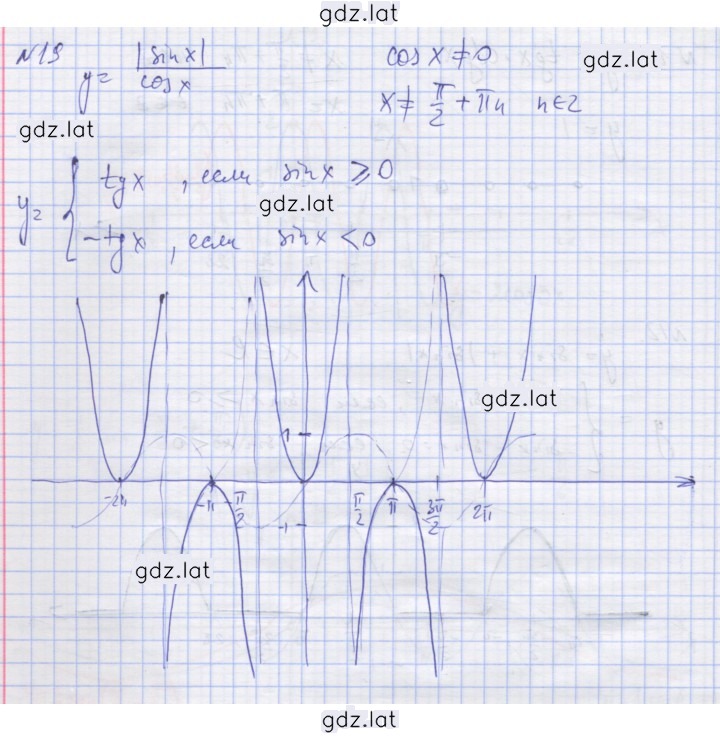 gdz.lat
№19 y= |sinx| / cosx cosx≠0 gdz.lat
x≠ π/2 + πn n∈Z
gdz.lat
y= { tgx , если sinx ⩾ 0
gdz.lat
-tgx , если sinx < 0
gdz.lat
1
-2π -π -π/2 π/2 π 3π/2 2π
-1
gdz.lat
gdz.lat